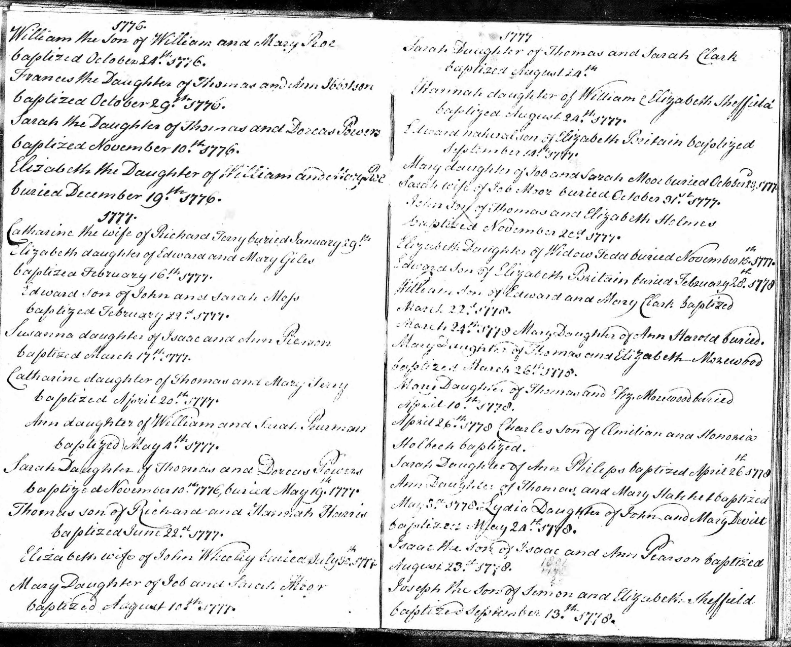 1776.
William the Son of William and Mary Roe
baptized October 24th. 1776.
Frances the Daughter of Thomas and Ann Ibbotson
baptized October 29th. 1776.
Sarah the Daughter of Thomas and Dorcas Powers
baptized November 10th. 1776.
Elizabeth the Daughter of William and Mary Roe
buried December 19th. 1776.
1777.
Catharine the wife of Richard Terry buried January 29th
Elizabeth daughter of Edward and Mary Giles
baptized February 16th. 1777.
Edward Son of John and Sarah Moss
baptized February 22d. 1777.
Susanna daughter of Isaac and Ann Pierson
baptized March 17th. 1777.
Catharine daughter of Thomas and Mary Terry
baptized April 20th. 1777.
Ann daughter of William and Sarah
baptized May 4th. 1777.
Sarah Daughter of Thomas and Dorcas Powers
baptized November 10th. 1776, buried May 19th. 1777.
Thomas son of Richard and Hannah Harris
baptized June 22d. 1777.
Elizabeth wife of John buried July 1777.
Mary Daughter of Job and Sarah Moor
baptized August 10th. 1777.
1777
Sarah Daughter of Thomas and Sarah Clark
baptized August 24th
Hannah daughter of William & Elizabeth Sheffield
baptized August 24th. 1777.
Edward natural son of Elizabeth Britain baptized
September 1777.
Mary daughter of Job and Sarah Moor buried October 1777
Sarah wife of Job Moor buried October 31st. 1777.
John Son of Thomas and Elizabeth Holmes
baptized November 2d. 1777.
Elizabeth Daughter of Widow Tedd buried November 1777.
Edward Son of Elizabeth Britain buried February 28th. 1778
William Son of Edward and Mary Clark baptized
March 22d. 1778.
March 24th. 1778 Mary Daughter of Ann Harold buried.
Mary Daughter of Thomas and Elizabeth Morewood
baptized March 26th. 1778.
Mary Daughter of Thomas and Eliz. Morewood buried
April 10th. 1778.
April 26th. 1778 Charles Son of and Honoria
Holbech baptized.
Sarah Daughter of Ann Philips baptized April 26th 1778
Ann Daughter of Thomas, and Mary Hatchet baptized
May 3d. 1778. Lydia Daughter of John and Mary
baptized May 24th. 1778.
Isaac the Son of Isaac and Ann Pearson baptized
August 23d. 1778.
Joseph the Son of Simon and Elizabeth Sheffield
baptized September 13th. 1778.